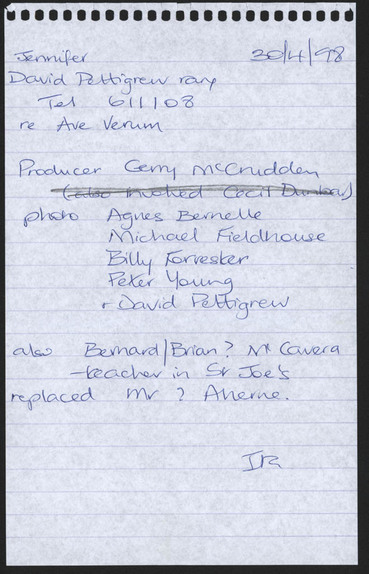 Jennifer 30/4/98
David Pettigrew rang
Tel 611108
re Ave Verum
Producer Gerry McCrudden
(also involved Cecil Dunbar)
photo Agnes Bernelle
Michael Fieldhouse
Billy Forrester
Peter Young
+ David Pettigrew
also Bernard/Brian? Mc Cavera
-teacher in St Joe's
replaced Mr ? Aherne.